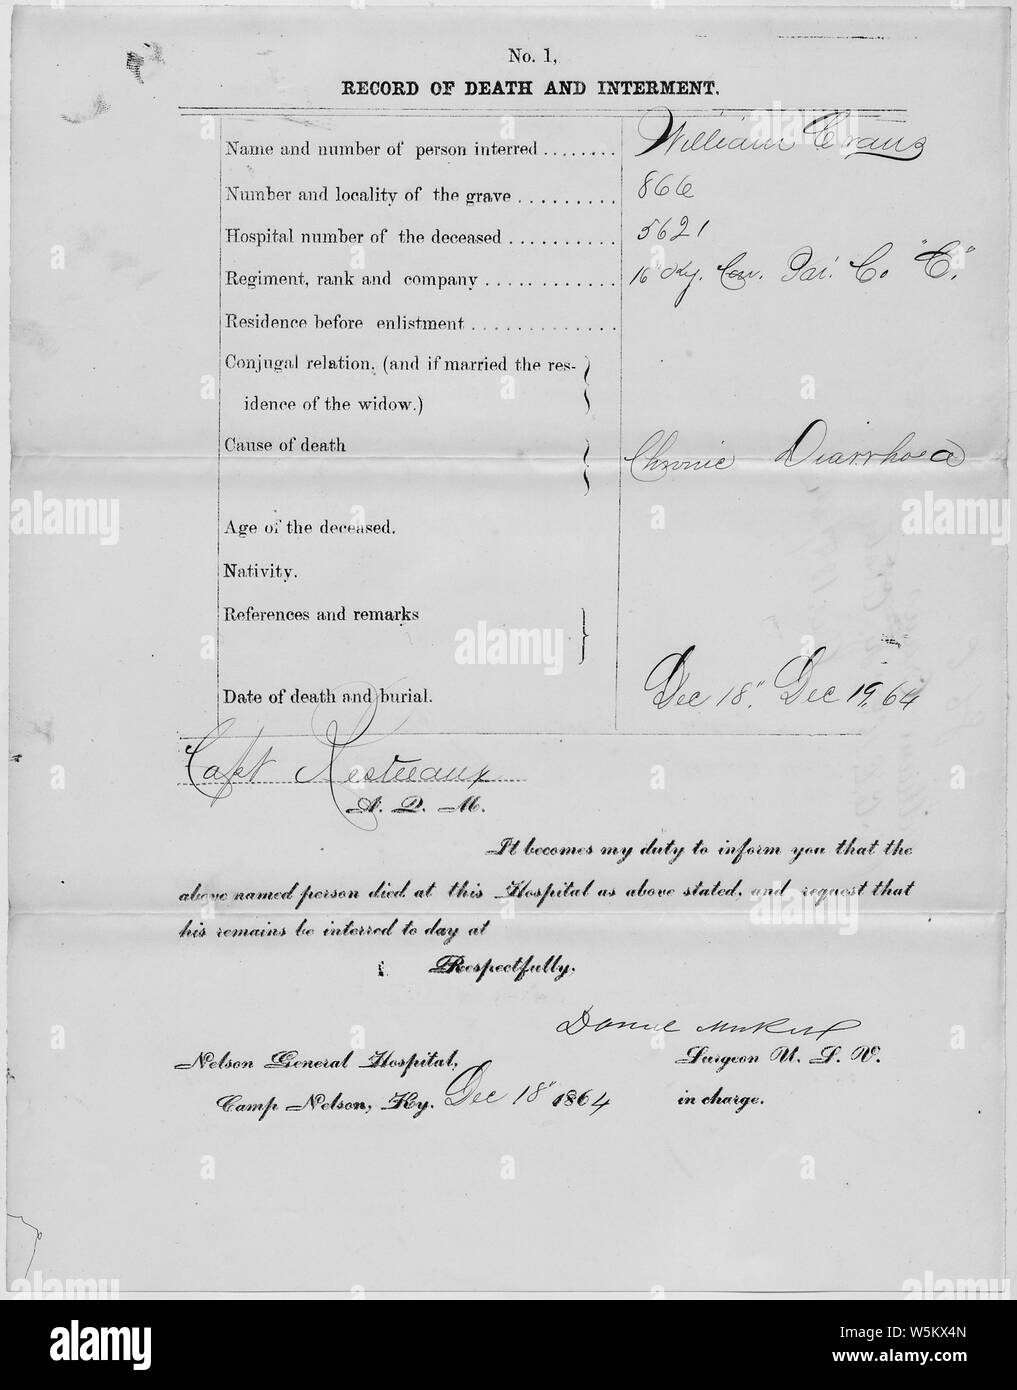 No. 1,
RECORD OF DEATH AND INTERMENT.
Name and number of person interred ........ William Evans
Number and locality of the grave .......... 866
Hospital number of the deceased .......... 5621
Regiment, rank and company ............. 16" Ky. Cav. Co "E"
Residence before enlistment ..............
Conjugal relation, (and if married the res-
idence of the widow.)
Cause of death Chronic Diarrhoea
Age of the deceased.
Nativity.
References and remarks
Date of death and burial. Dec 18", Dec 19, 64
Capt Restieaux
A. Q. M.
It becomes my duty to inform you that the
above named person died at this Hospital as above stated, and request that
his remains be interred to day at
Respectfully,
Nelson General Hospital, Surgeon U. S. V.
Camp Nelson, Ky. Dec 18" 1864 in charge.
alamy
alamy
alamy
alamy
alamy
alamy
a
a
a
a
alamy
Image ID: W5KX4N
www.alamy.com